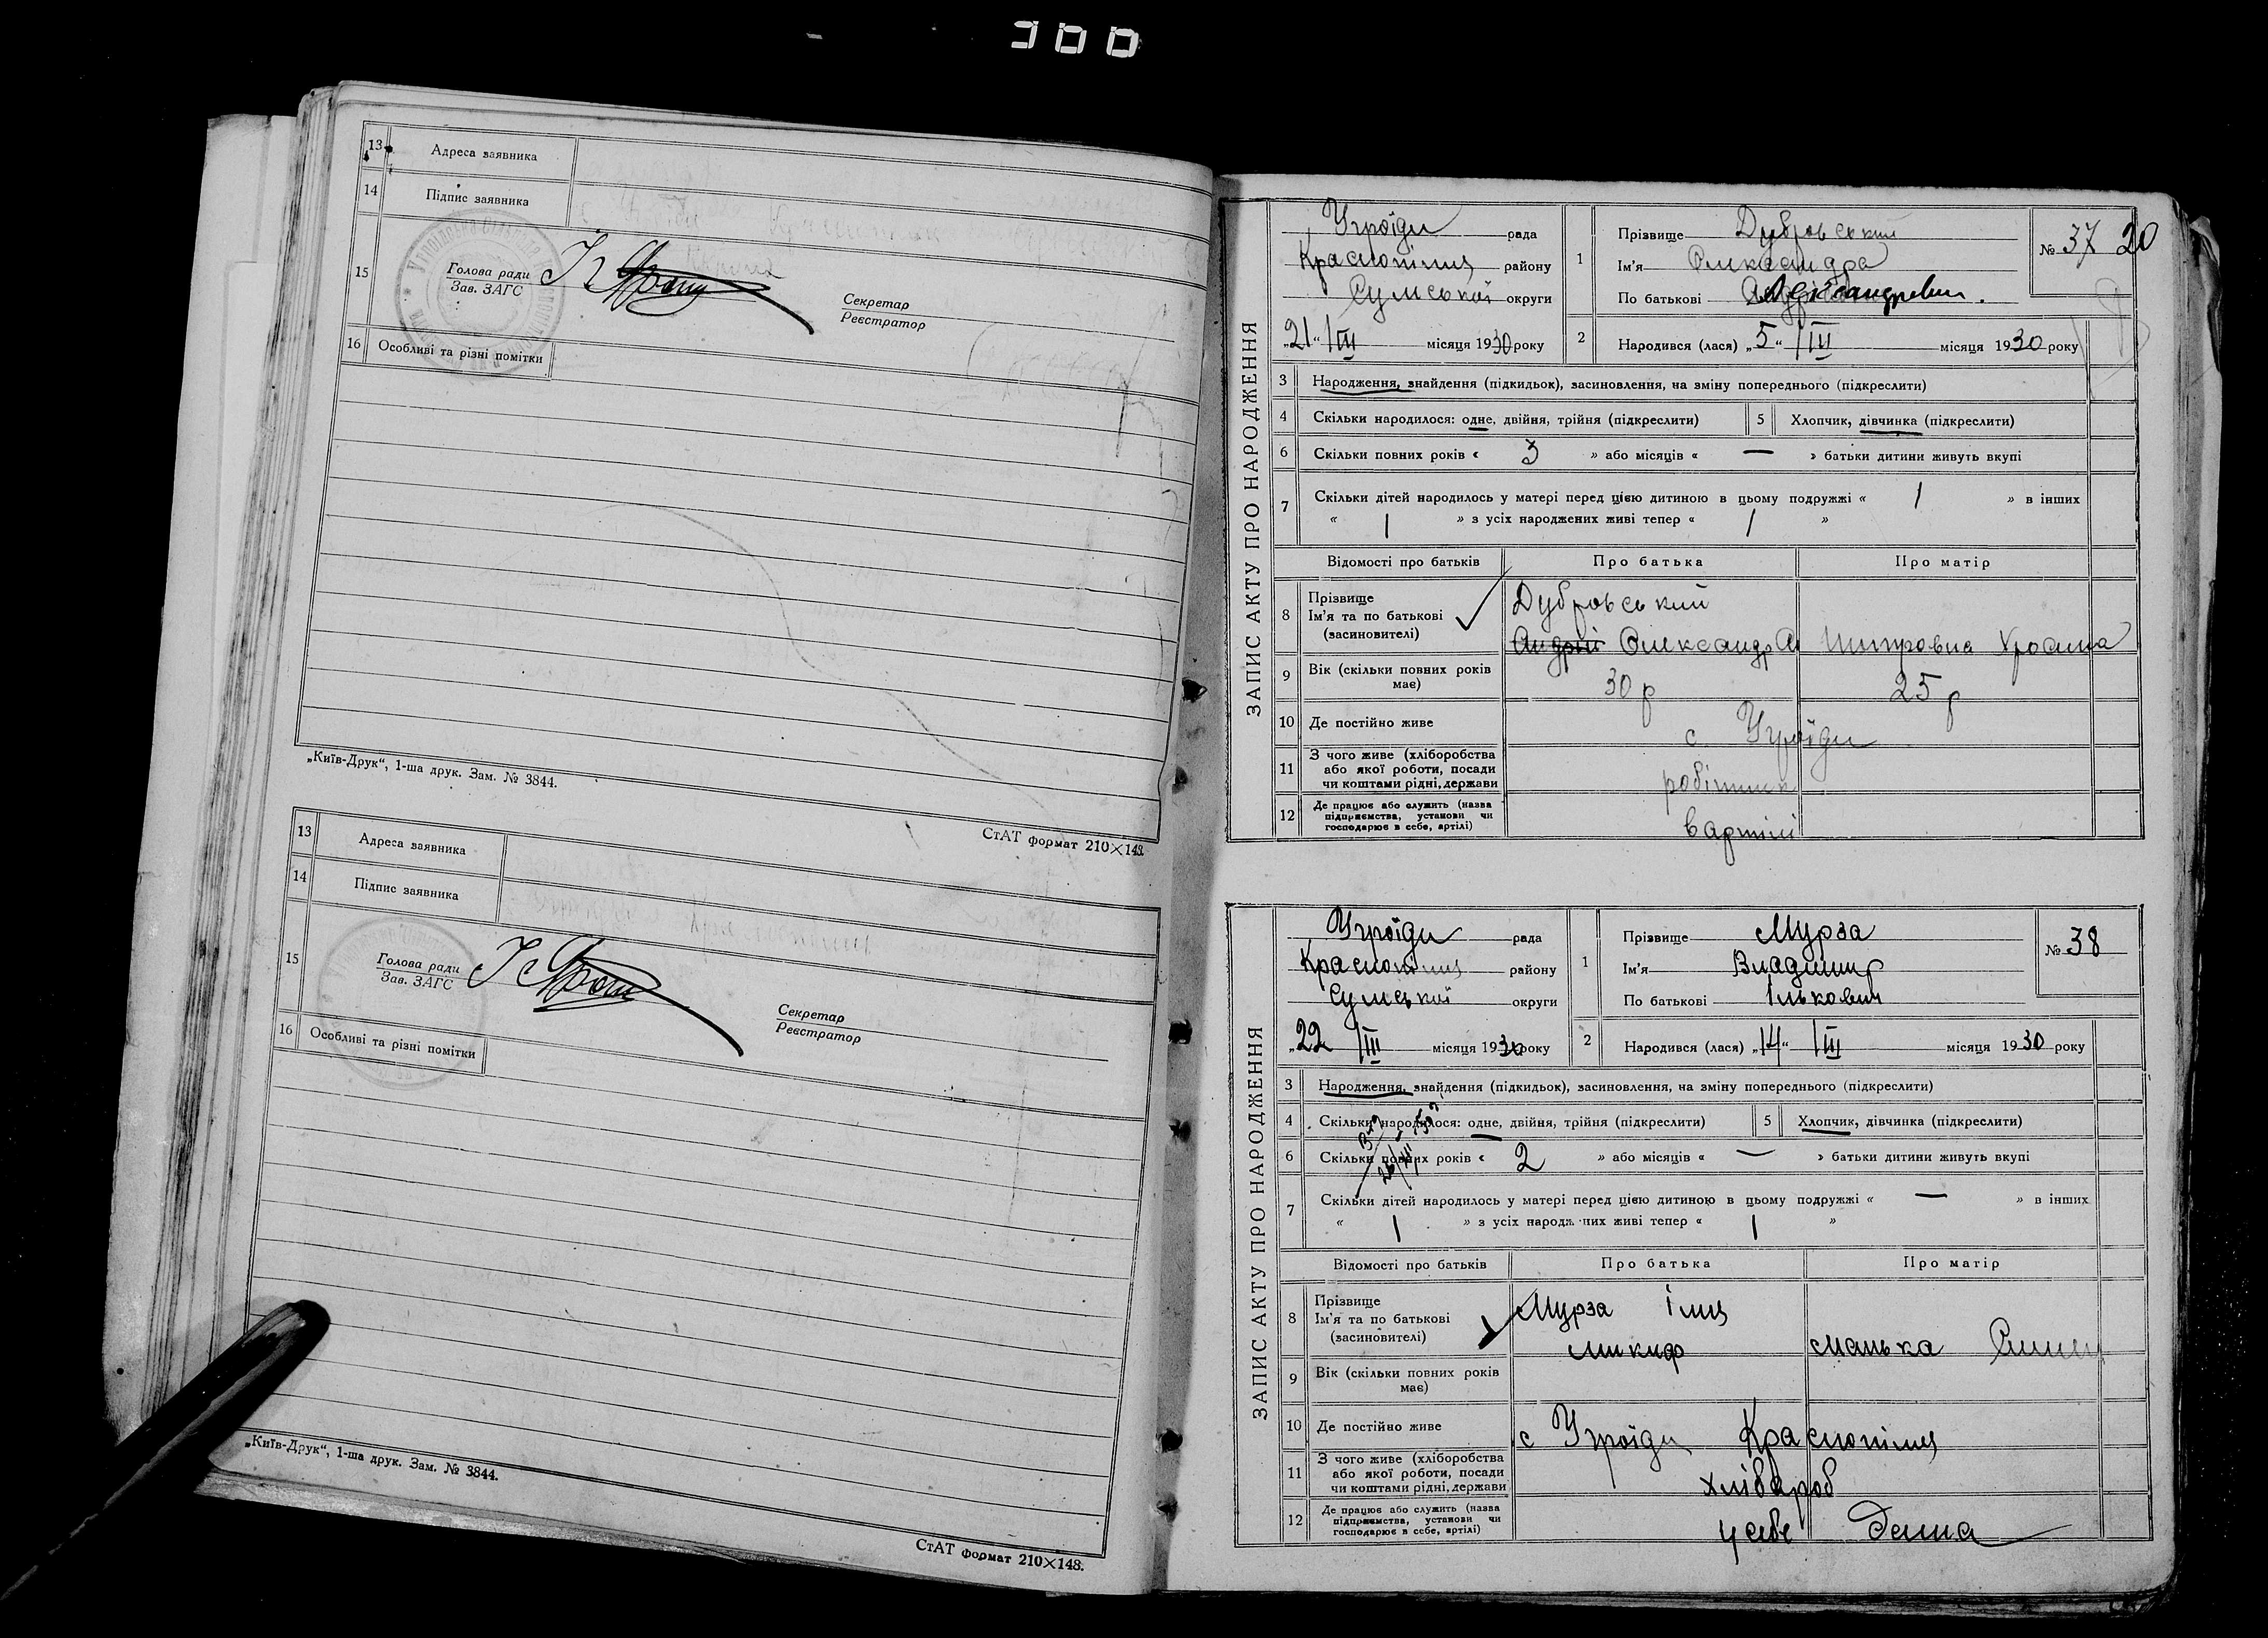 300
13 Адреса заявника
14 Підпис заявника
15 Голова ради
Зав. ЗАГС
Секретар
Реєстратор
16 Особливі та різні помітки
„Київ-Друк“, 1-ша друк. Зам. № 3844.
СтАТ формат 210×148.
13 Адреса заявника
14 Підпис заявника
15 Голова ради
Зав. ЗАГС
Секретар
Реєстратор
16 Особливі та різні помітки
„Київ-Друк“, 1-ша друк. Зам. № 3844.
СтАТ формат 210×148.
ЗАПИС АКТУ ПРО НАРОДЖЕННЯ
Угроїди рада
Краснопілля району
Сумської округи
„21“ III місяця 1930 року
1 Прізвище Дубровський
Ім'я Олександра
По батькові Александревич.
№ 37 20
2 Народився (лася) „5“ III місяця 1930 року
3 Народження, знайдення (підкидьок), засиновлення, на зміну попереднього (підкреслити)
4 Скільки народилося: одне, двійня, трійня (підкреслити) 5 Хлопчик, дівчинка (підкреслити)
6 Скільки повних років « 3 » або місяців « — » батьки дитини живуть вкупі
7 Скільки дітей народилось у матері перед цією дитиною в цьому подружжі « 1 » в інших
« 1 » з усіх народжених живі тепер « 1 »
Відомості про батьків Про батька Про матір
8 Прізвище
Ім'я та по батькові
(засиновителі)
Дубровський
Андрій Олександр
9 Вік (скільки повних років має) 30 р 25 р
10 Де постійно живе с Угроїди
11 З чого живе (хліборобства або якої роботи, посади чи коштами рідні, держави робітник
12 Де працює або служить (назва підприємства, установи чи господарює в себе, артілі) в артілі
ЗАПИС АКТУ ПРО НАРОДЖЕННЯ
Угроїди рада
Краснопілля району
Сумської округи
„22 III місяця 1930 року
1 Прізвище Мурза
Ім'я Владимир
По батькові Ількович
№ 38
2 Народився (лася) „14“ III місяця 1930 року
3 Народження, знайдення (підкидьок), засиновлення, на зміну попереднього (підкреслити)
4 Скільки народилося: одне, двійня, трійня (підкреслити) 5 Хлопчик, дівчинка (підкреслити)
6 Скільки повних років « 2 » або місяців « — » батьки дитини живуть вкупі
7 Скільки дітей народилось у матері перед цією дитиною в цьому подружжі « — » в інших
« 1 » з усіх народжених живі тепер « 1 »
Відомості про батьків Про батька Про матір
8 Прізвище
Ім'я та по батькові
(засиновителі)
Мурза Ілля
Микиф
9 Вік (скільки повних років має)
10 Де постійно живе с Угроїди Краснопілля
11 З чого живе (хліборобства або якої роботи, посади чи коштами рідні, держави хлібароб
12 Де працює або служить (назва підприємства, установи чи господарює в себе, артілі) у себе дома